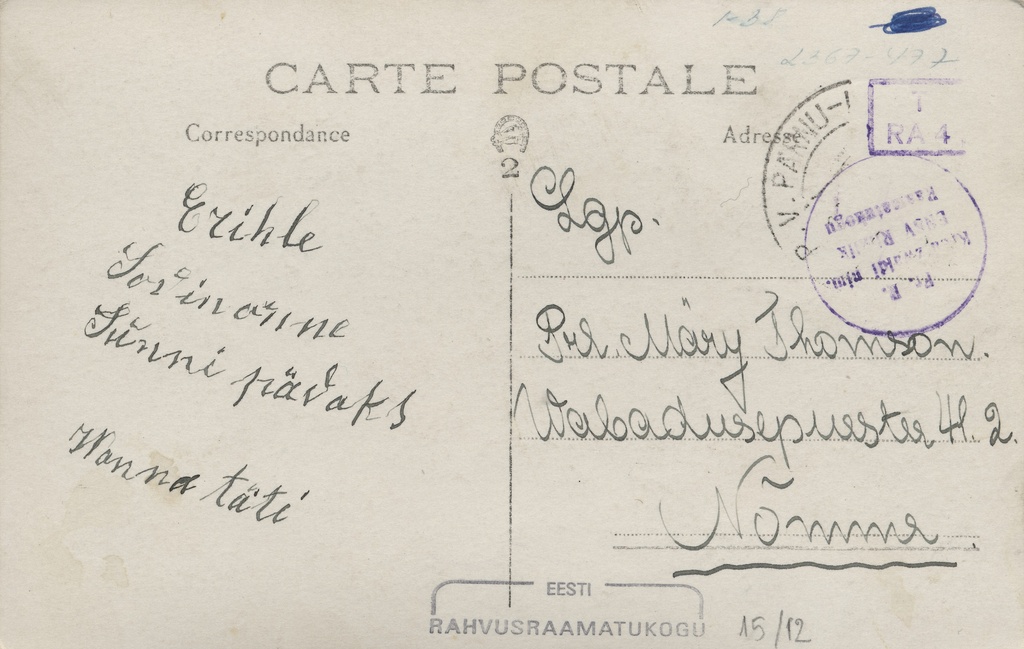 CARTE POSTALE
Correspondance
Adresse
2
P. V. PÄRNU-I
T
RA 4
Fr. R.
Kreutzwaldi nim.
ENSV Riiklik
Raamatukogu
Erihle
Sünni pävaks
Wanna täti
Lgp.
Prl. Märy Thomson.
Wabadusepuiestee 41. 2.
Nõmme.
EESTI
RAHVUSRAAMATUKOGU
15/12